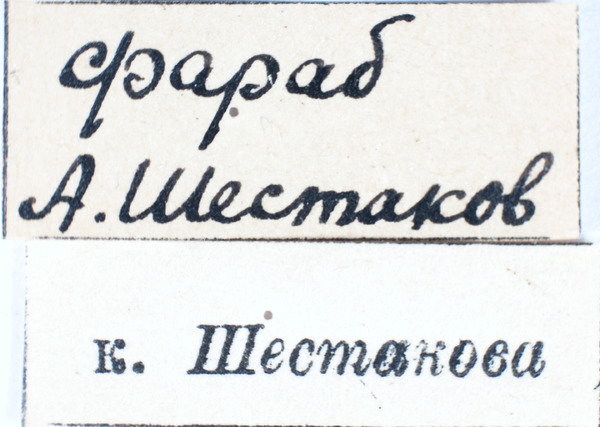 фараб
А. Шестаков
к. Шестакова